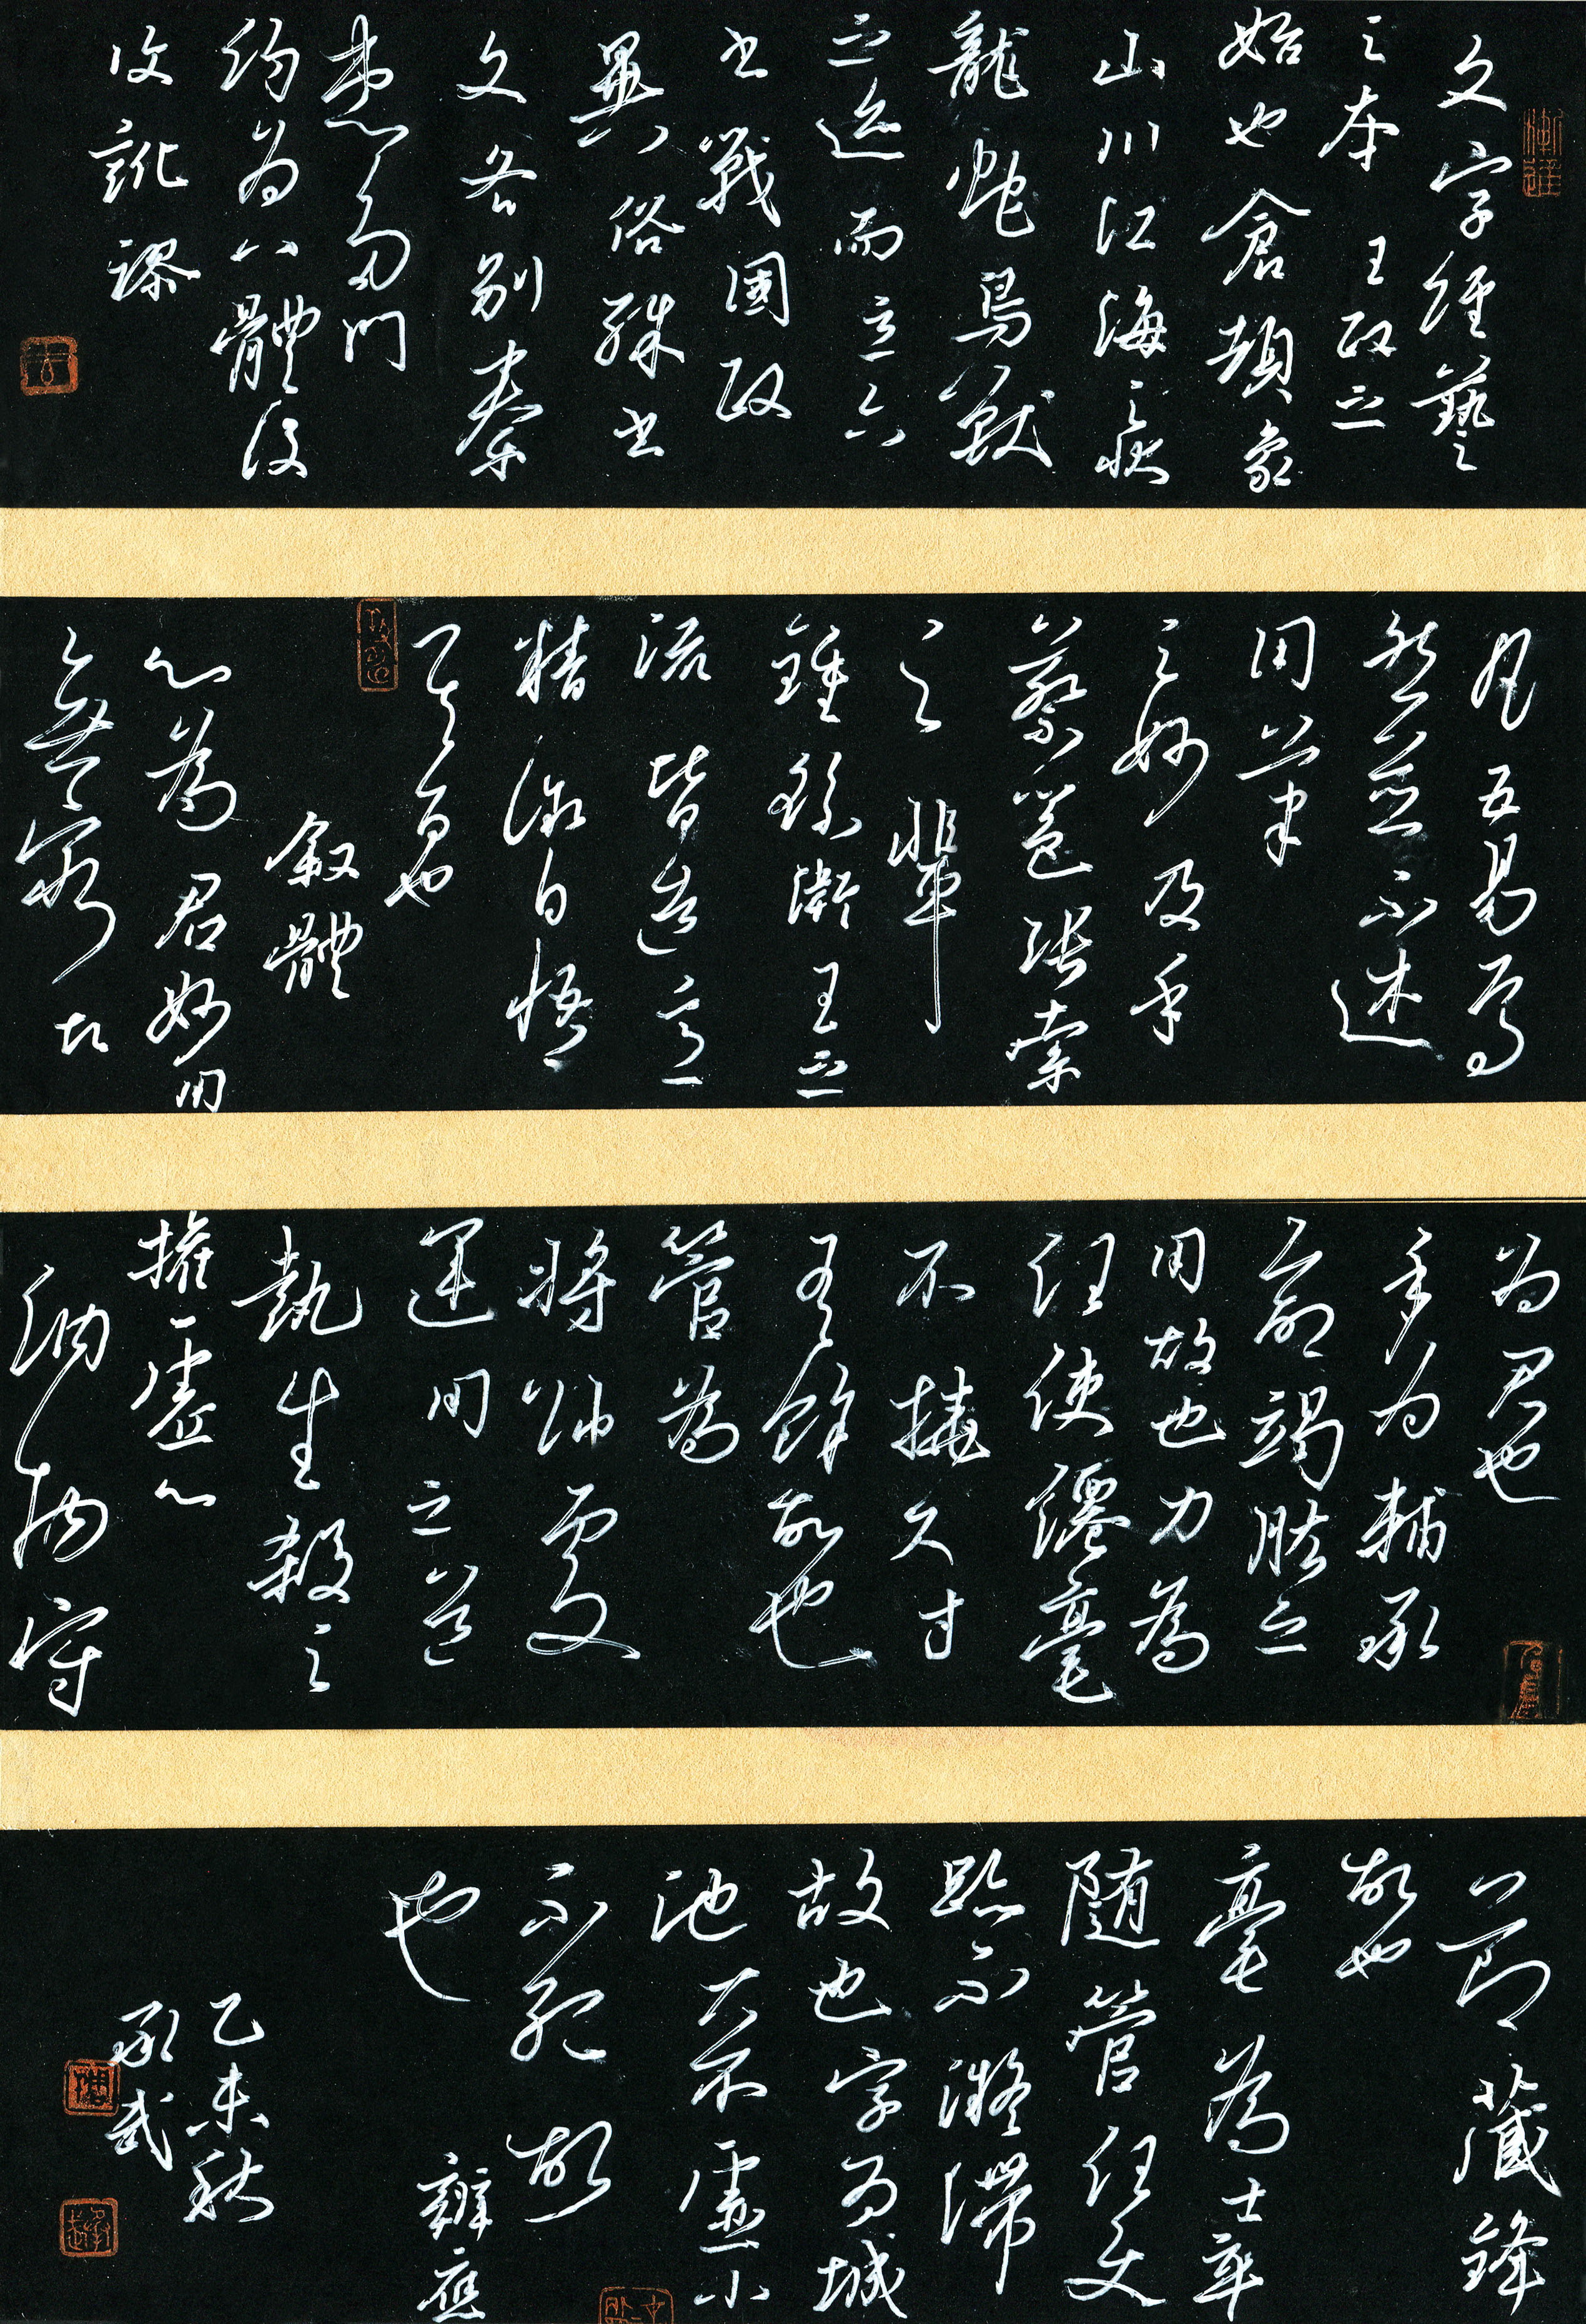 文字經藝
之本王政之
始也倉頡象
山川江海之狀
龍虵鳥獸
之迹而立六
書戰國政
異俗殊書
文各別秦
患多門
約為八體後
復訛謬
凡五易焉
然並不述
用筆
之妙及乎
蔡邕張索
之輩
鍾繇衛王之
流皆造意
精微自悟
其旨也
敘體
心為君妙用
之無窮故
為君也
手為輔承
命竭肱之
用故也力為
任使纖毫
不撓尺寸
有餘故也
管為
將帥處
運用之道
執生殺之
權虛心
納物守
節藏鋒
故也
毫為士卒
隨管任使
跡不凝滯
故也字為城
池大不虛小
不孤故
也 辨應
乙未秋
承武